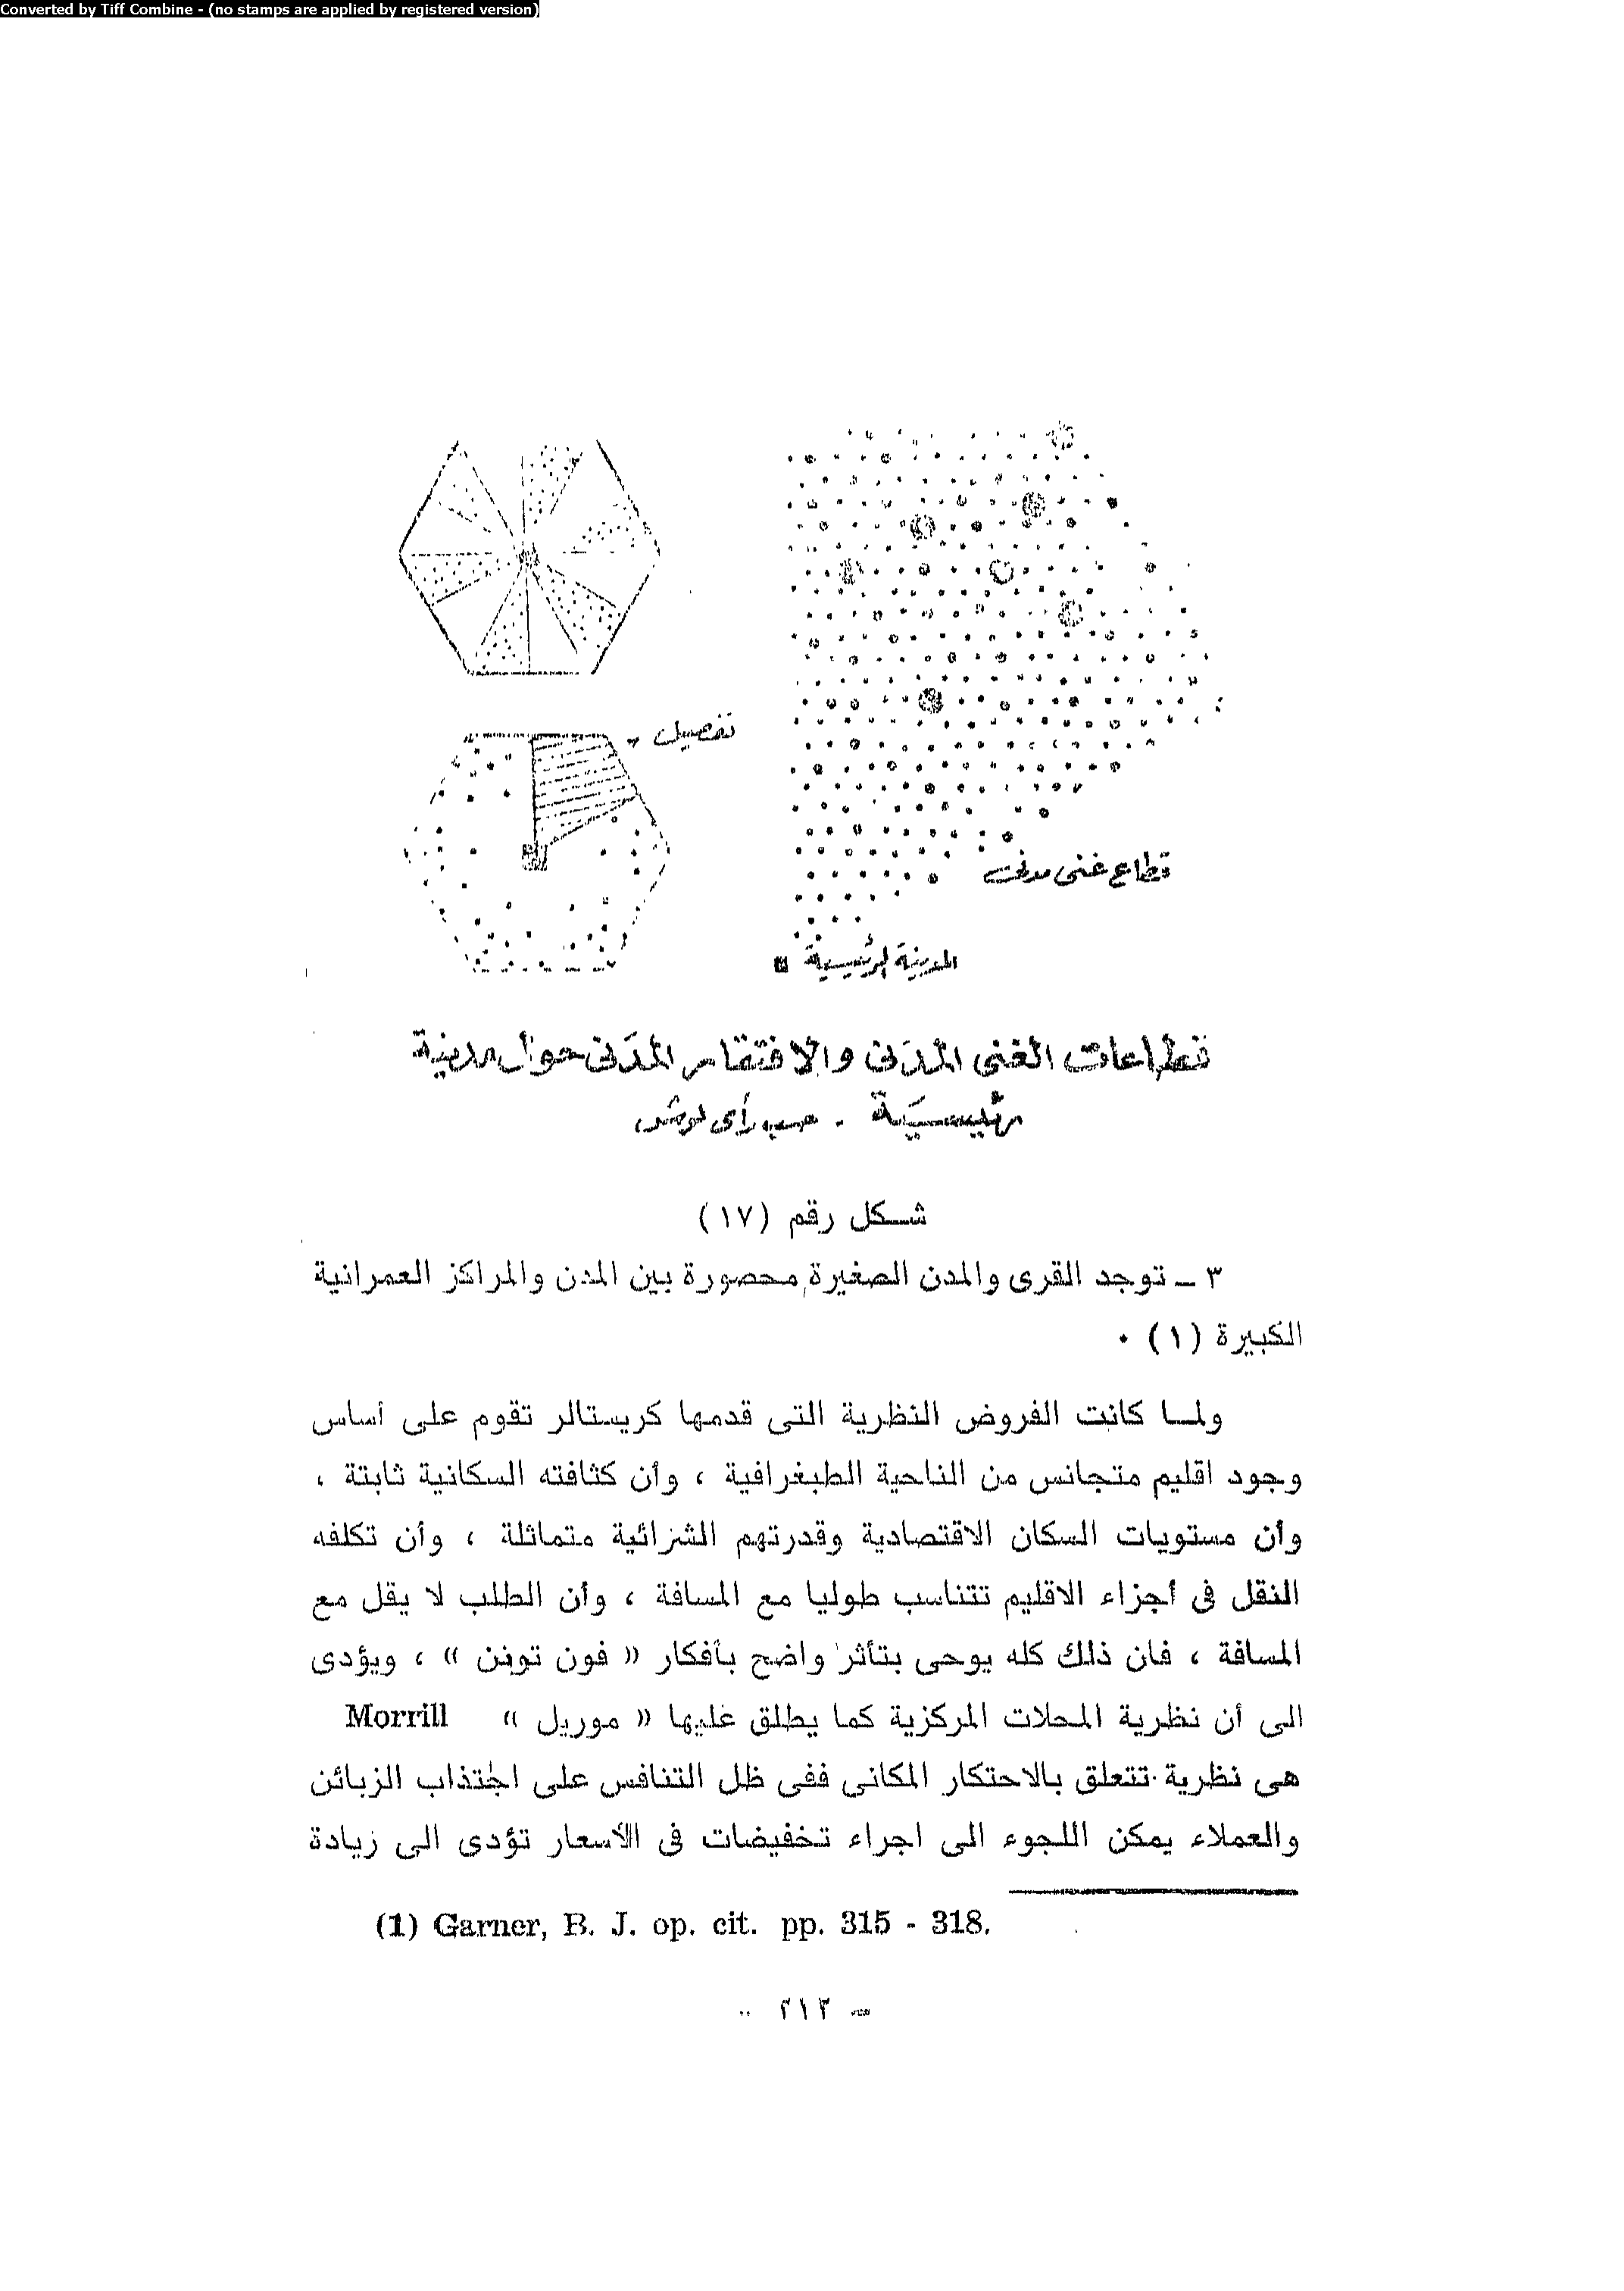 Converted by Tiff Combine - (no stamps are applied by registered version)
تفصيل
قطاع غنى مدنى
المدينة الرئيسية
قطاعات الغنى المدنى والافتقار المدنى حول مدينة
رئيسية - حسب رأى لوش
شكل رقم (١٧)
٣ – توجد القرى والمدن الصغيرة محصورة بين المدن والمراكز العمرانية
الكبيرة (١) ٠
ولما كانت الفروض النظرية التى قدمها كريستالر تقوم على أساس
وجود اقليم متجانس من الناحية الطبغرافية ، وأن كثافته السكانية ثابتة ،
وأن مستويات السكان الاقتصادية وقدرتهم الشرائية متماثلة ، وأن تكلفه
النقل فى أجزاء الاقليم تتناسب طوليا مع المسافة ، وأن الطلب لا يقل مع
المسافة ، فان ذلك كله يوحى بتأثر واضح بأفكار « فون تونن » ، ويؤدى
الى أن نظرية المحلات المركزية كما يطلق عليها « موريل » Morrill
هى نظرية تتعلق بالاحتكار المكانى ففى ظل التنافس على اجتذاب الزبائن
والعملاء يمكن اللجوء الى اجراء تخفيضات فى الأسعار تؤدى الى زيادة
(1) Garner, B. J. op. cit. pp. 315 - 318.
– ٢١٣ –